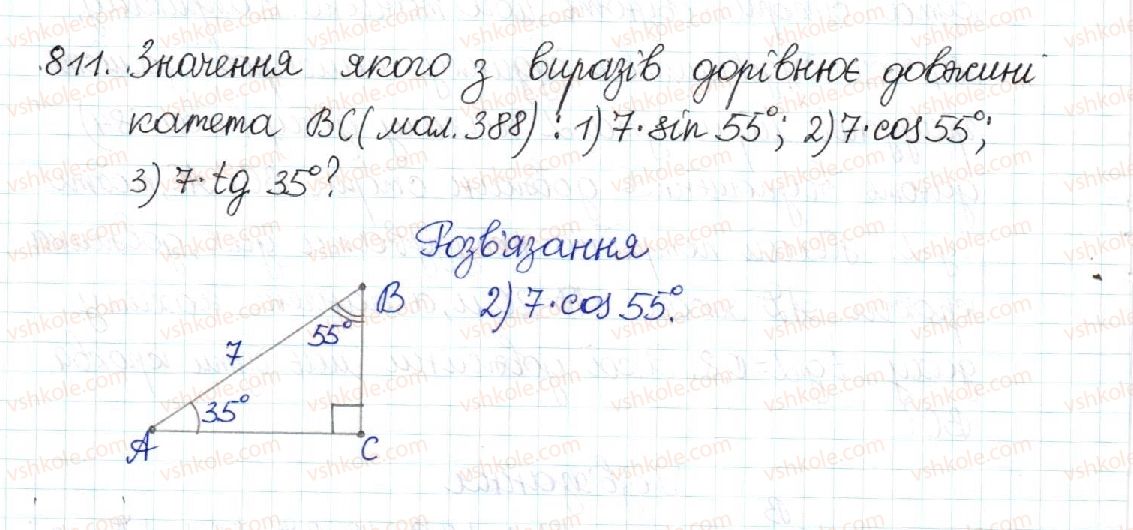 811. Значення якого з виразів дорівнює довжині
катета BC (мал. 388) : 1) 7·sin 55°; 2) 7·cos 55°;
3) 7·tg 35°?
Розв'язання
B 2) 7·cos 55°.
55°
7
35°
A C
vshkole.com